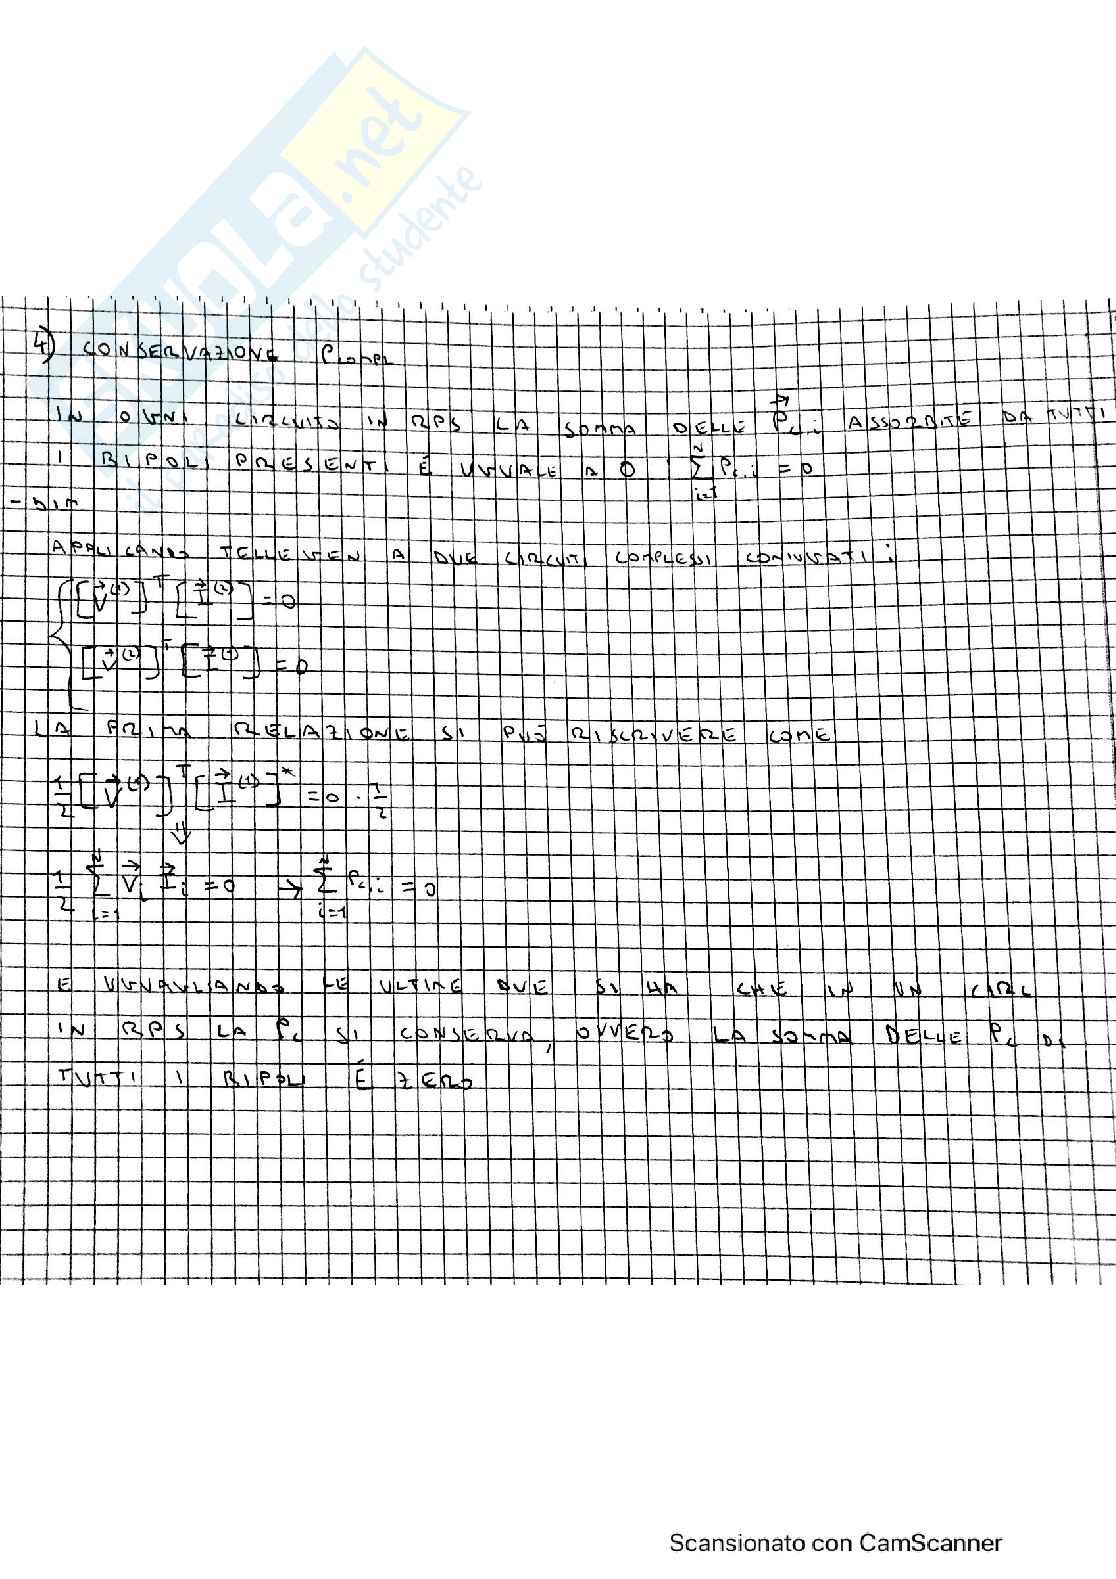 SKUOLA.net
il paradiso dello studente
4) CONSERVAZIONE PCOMPL
IN OGNI CIRCUITO IN RPS LA SOMMA DELLE P⃗c,i ASSORBITE DA TUTTI
I BIPOLI PRESENTI É UGUALE A 0 ∑_{i=1}^{N} Pc,i = 0
- DIM
APPLICANDO TELLEGEN A DUE CIRCUITI COMPLESSI CONIUGATI:
{ [V⃗^(1)]^T [I⃗^(2)] = 0
[V⃗^(2)]^T [I⃗^(1)] = 0
LA PRIMA RELAZIONE SI PUÓ RISCRIVERE COME
1/2 [V⃗^(1)]^T [I⃗^(1)]^* = 0 · 1/2
⇓
1/2 ∑_{i=1}^{N} V⃗i I⃗i = 0 → ∑_{i=1}^{N} Pc,i = 0
E UGUAGLIANDO LE ULTIME DUE SI HA CHE IN UN CIRC
IN RPS LA Pc SI CONSERVA, OVVERO LA SOMMA DELLE Pc DI
TUTTI I BIPOLI É ZERO
Scansionato con CamScanner